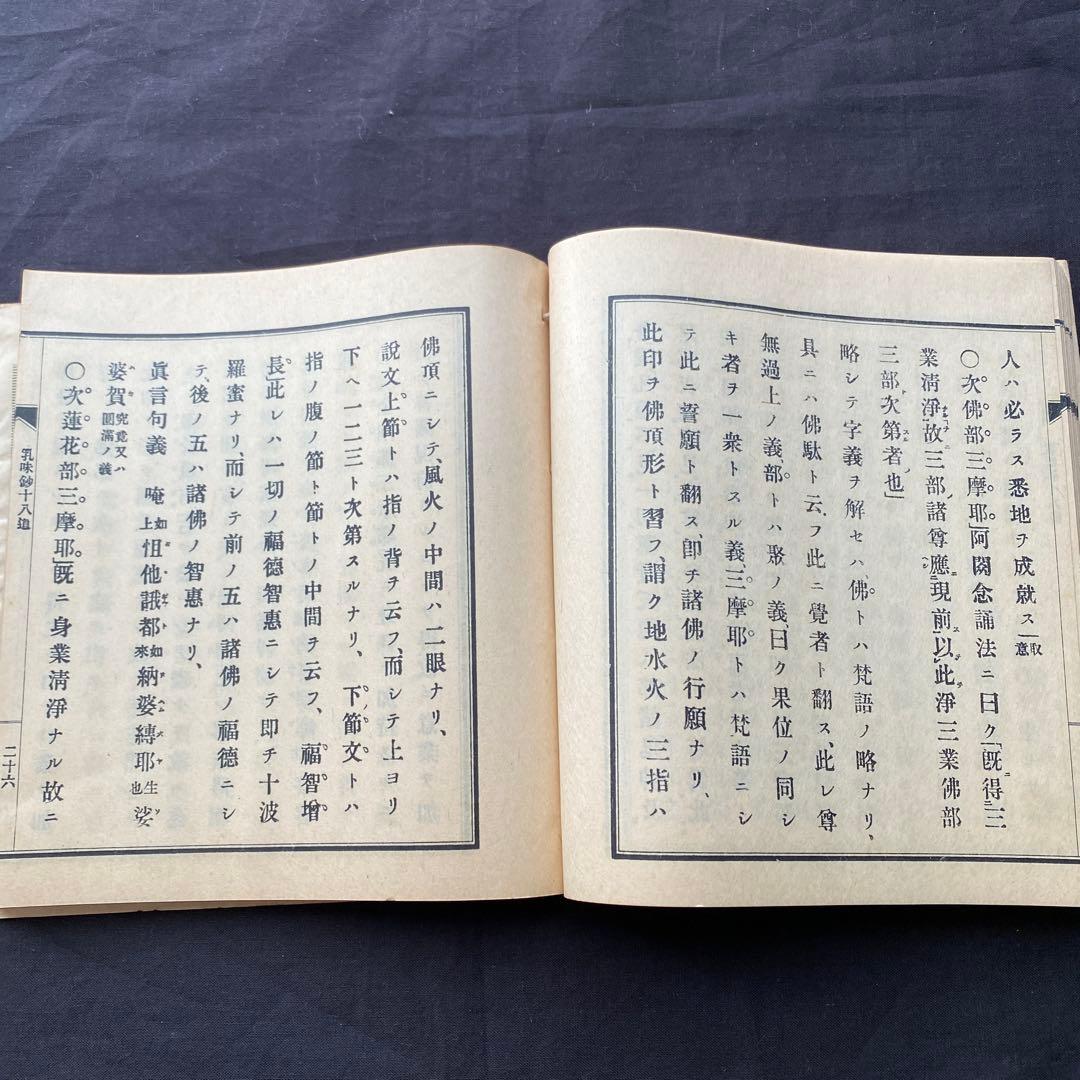 人ハ必ラス悉地ヲ成就ス取意
〇次佛部三摩耶」阿閦念誦法ニ曰ク「既得二三
業淸淨一故ナニ三部諸尊應ニ現前ス以テ此淨三業佛部
三部次第者也」
略シテ字義ヲ解セハ、佛トハ梵語ノ略ナリ、
具ニハ佛駄ト云フ、此ニ覺者ト翻ス、此レ尊
無過上ノ義、部トハ聚ノ義、曰ク果位ノ同シ
キ者ヲ一衆トスル義、三摩耶トハ梵語ニシ
テ此ニ誓願ト翻ス、卽チ諸佛ノ行願ナリ、
此印ヲ佛頂形ト習フ、謂ク地水火ノ三指ハ
佛頂ニシテ、風火ノ中間ハ二眼ナリ、
說文上節トハ指ノ背ヲ云フ、而シテ上ヨリ
下ヘ一二三ト次第スルナリ、下ノ節文トハ
指ノ腹ノ節ト節トノ中間ヲ云フ、福智增
長此レハ一切ノ福德智惠ニシテ即チ十波
羅蜜ナリ、而シテ前ノ五ハ諸佛ノ福德ニシ
テ、後ノ五ハ諸佛ノ智惠ナリ、
眞言句義 唵上怛他誐都如來納婆縛耶生也娑
婆賀究竟又ハ圓滿ノ義
〇次蓮花部三摩耶」既ニ身業淸淨ナル故ニ
乳味鈔十八道
二十六